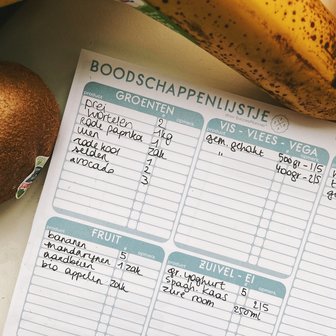 BOODSCHAPPENLIJSTJE
GROENTEN
product
opmerk.
prei 2
wortelen 1kg
rode paprika 1
uien zak
rode kool 1
selder 2
avocado 3
VIS - VLEES - VEGA
product
opmerk.
gem. gehakt 500gr - 1/5
" 400gr - 2/5
FRUIT
product
opmerk.
bananen 5
mandarijnen 1 zak
aardbeien
bio appelen zak
ZUIVEL - EI
product
opmerk.
gr. yoghurt 5
spagh. kaas 2/5
zure room 250ml